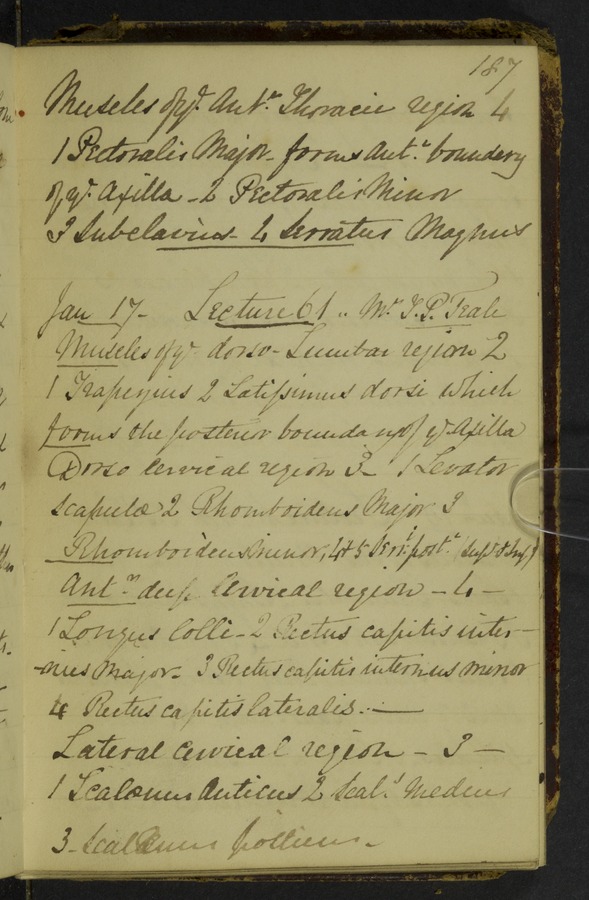 187
Muscles of ye. Antr. Thoracic region 4
1 Pectoralis Major - forms Antr. boundery
of ye. Axilla - 2 Pectoralis Minor
3 Subclavius - 4 Serratus Magnus
Jan 17 - Lecture 61 .. Mr. T. P. Teale
Muscles of ye dorso-Lumbar region 2
1 Trapezius 2 Latissimus dorsi which
forms the posterior boundary of ye Axilla
Dorso Cervical region 3 - 1 Levator
scapulæ 2 Rhomboideus Major 3
Rhomboideus minor, 4 & 5 Serri. postr.
Antr. deep Cervical region - 4 -
1 Longus Colli - 2 Rectus capitis inter-
-nus Major - 3 Rectus capitis internus minor
4 Rectus capitis lateralis . -
Lateral Cervical region - 3 -
1 Scalænus Anticus 2 Scals. Medius
3 - Scalænus posticus -